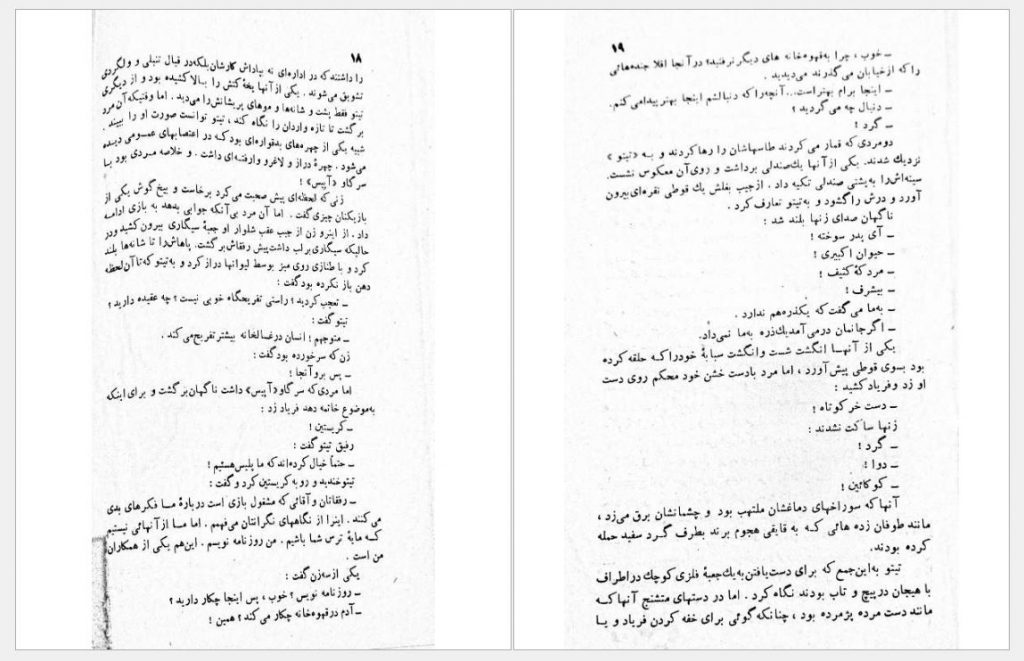 ۱۸
را داشتند که در اداره‌ای نه بپاداش کارشان بلکه در قبال تنبلی و ولگردی
تشویق می‌شوند . یکی از آنها یقهٔ کتش را بالا کشیده بود و از دیگری
تیتو فقط پشت و شانه‌ها و موهای پریشانش را می‌دید . اما وقتیکه آن مرد
برگشت تا تازه واردان را نگاه کند ، تیتو توانست صورت او را ببیند .
شبیه یکی از چهره‌های بدقواره‌ای بود که در اعتصابهای عمومی دیده
می‌شود . چهرهٔ دراز و لاغر و وارفته‌ای داشت . و خلاصه مردی بود با
سر گاو «آپیس» !
زنی که لحظه‌ای پیش صحبت می‌کرد برخاست و بیخ گوش یکی از
بازیکنان چیزی گفت . اما آن مرد بی‌آنکه جوابی بدهد به بازی ادامه
داد . از اینرو زن از جیب عقب شلوار او جعبهٔ سیگاری بیرون کشید و در
حالیکه سیگاری بر لب داشت پیش رفقاش برگشت . پاهاش را تا شانه‌ها بلند
کرد و با طنازی روی میز بوسط لیوانها دراز کرد و به تیتو که تا آن لحظه
دهن باز نکرده بود گفت :
ـ تعجب کردید ؟ راستی تفریحگاه خوبی نیست ؟ چه عقیده دارید ؟
تیتو گفت :
ـ متوجهم ! انسان در غسالخانه بیشتر تفریح می‌کند .
زن که سر خورده بود گفت :
ـ پس برو آنجا !
اما مردی که سر گاو «آپیس» داشت ناگهان برگشت و برای اینکه
به موضوع خاتمه دهد فریاد زد :
ـ کریستین !
رفیق تیتو گفت :
ـ حتماً خیال کرده‌اند که ما پلیس هستیم !
تیتو خندید و رو به کریستین کرد و گفت :
ـ رفقاتان و آقائی که مشغول بازی است دربارهٔ ما فکرهای بدی
می‌کنند . اینرا از نگاههای نگرانتان می‌فهمم . اما ما از آنهائی نیستیم
که مایهٔ ترس شما باشیم . من روزنامه نویسم . این هم یکی از همکاران
من است .
یکی از سه زن گفت :
ـ روزنامه نویس ؟ خوب ، پس اینجا چکار دارید ؟
ـ آدم در قهوه‌خانه چکار می‌کند ؟ همین !
۱۹
ـ خوب ، چرا به قهوه‌خانه های دیگر نرفتید؟ در آنجا اقلا چنده‌هائی
را که از خیابان می‌گذرند می‌دیدید .
ـ اینجا برام بهتر است... آنچه را که دنبالشم اینجا بهتر پیدا می‌کنم.
ـ دنبال چه می‌گردید ؟
ـ گرد !
دو مردی که قمار می‌کردند طاسهاشان را رها کردند و به «تیتو »
نزدیک شدند. یکی از آنها یک صندلی برداشت و روی آن معکوس نشست.
سینه‌اش را به پشتی صندلی تکیه داد . از جیب بغلش یک قوطی نقره‌ای بیرون
آورد و درش را گشود و به تیتو تعارف کرد .
ناگهان صدای زنها بلند شد :
ـ آی پدر سوخته !
ـ حیوان اکبیری !
ـ مردکهٔ کثیف !
ـ بیشرف !
ـ به ما می‌گفت که یکذره هم ندارد .
ـ اگر جانمان درمی‌آمد یک ذره به ما نمی‌داد.
یکی از آنها انگشت شست و انگشت سبابهٔ خود را که حلقه کرده
بود بسوی قوطی پیش آورد ، اما مرد با دست خشن خود محکم روی دست
او زد و فریاد کشید :
ـ دست خر کوتاه !
زنها ساکت نشدند :
ـ گرد !
ـ دوا !
ـ کوکائین !
آنها که سوراخهای دماغشان ملتهب بود و چشمانشان برق می‌زد ،
مانند طوفان زده هائی که به قایقی هجوم برند بطرف گرد سفید حمله
کرده بودند.
تیتو به این جمع که برای دست یافتن به یک جعبهٔ فلزی کوچک در اطراف
با هیجان در پیچ و تاب بودند نگاه کرد . اما در دستهای متشنج آنها که
مانند دست مرده پژمرده بود ، چنانکه گوئی برای خفه کردن فریاد و یا